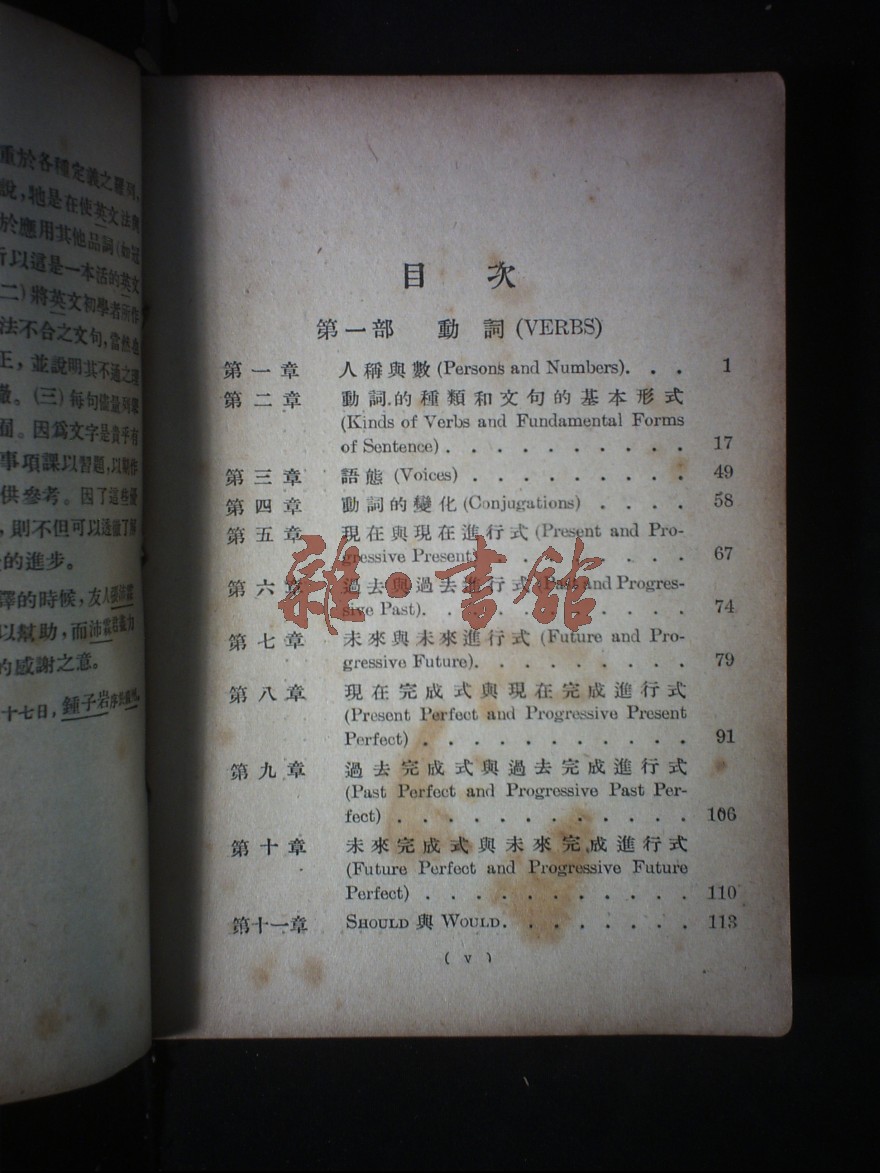 重於各種定義之羅列,
說,牠是在使英文法與
於應用其他品詞(如冠
所以這是一本活的英文
二)將英文初學者所作
法不合之文句,當然也
正,並說明其不通之理
徵。(三)每句儘量列舉
囿。因爲文字是貴乎有
事項課以習題,以期作
供參考。因了這些優
,則不但可以透徹了解
的進步。
譯的時候,友人
以幫助,而沛霖君盡力
的感謝之意。
十七日,鍾子岩序於
目 次
第一部 動 詞 (VERBS)
第 一 章 人 稱 與 數 (Persons and Numbers). . . . 1
第 二 章 動 詞 的 種 類 和 文 句 的 基 本 形 式
(Kinds of Verbs and Fundamental Forms
of Sentence) . . . . . . . . . . . 17
第 三 章 語 態 (Voices) . . . . . . . . . . 49
第 四 章 動 詞 的 變 化 (Conjugations) . . . . . 58
第 五 章 現 在 與 現 在 進 行 式 (Present and Pro-
gressive Present) . . . . . . . . . 67
第 六 章 過 去 與 過 去 進 行 式 (Past and Progres-
sive Past). . . . . . . . . . . . 74
第 七 章 未 來 與 未 來 進 行 式 (Future and Pro-
gressive Future). . . . . . . . . . 79
第 八 章 現 在 完 成 式 與 現 在 完 成 進 行 式
(Present Perfect and Progressive Present
Perfect) . . . . . . . . . . . . 91
第 九 章 過 去 完 成 式 與 過 去 完 成 進 行 式
(Past Perfect and Progressive Past Per-
fect) . . . . . . . . . . . . . 106
第 十 章 未 來 完 成 式 與 未 來 完 成 進 行 式
(Future Perfect and Progressive Future
Perfect) . . . . . . . . . . . . 110
第十一章 SHOULD 與 WOULD. . . . . . . . . 113
( v )
雜·書館